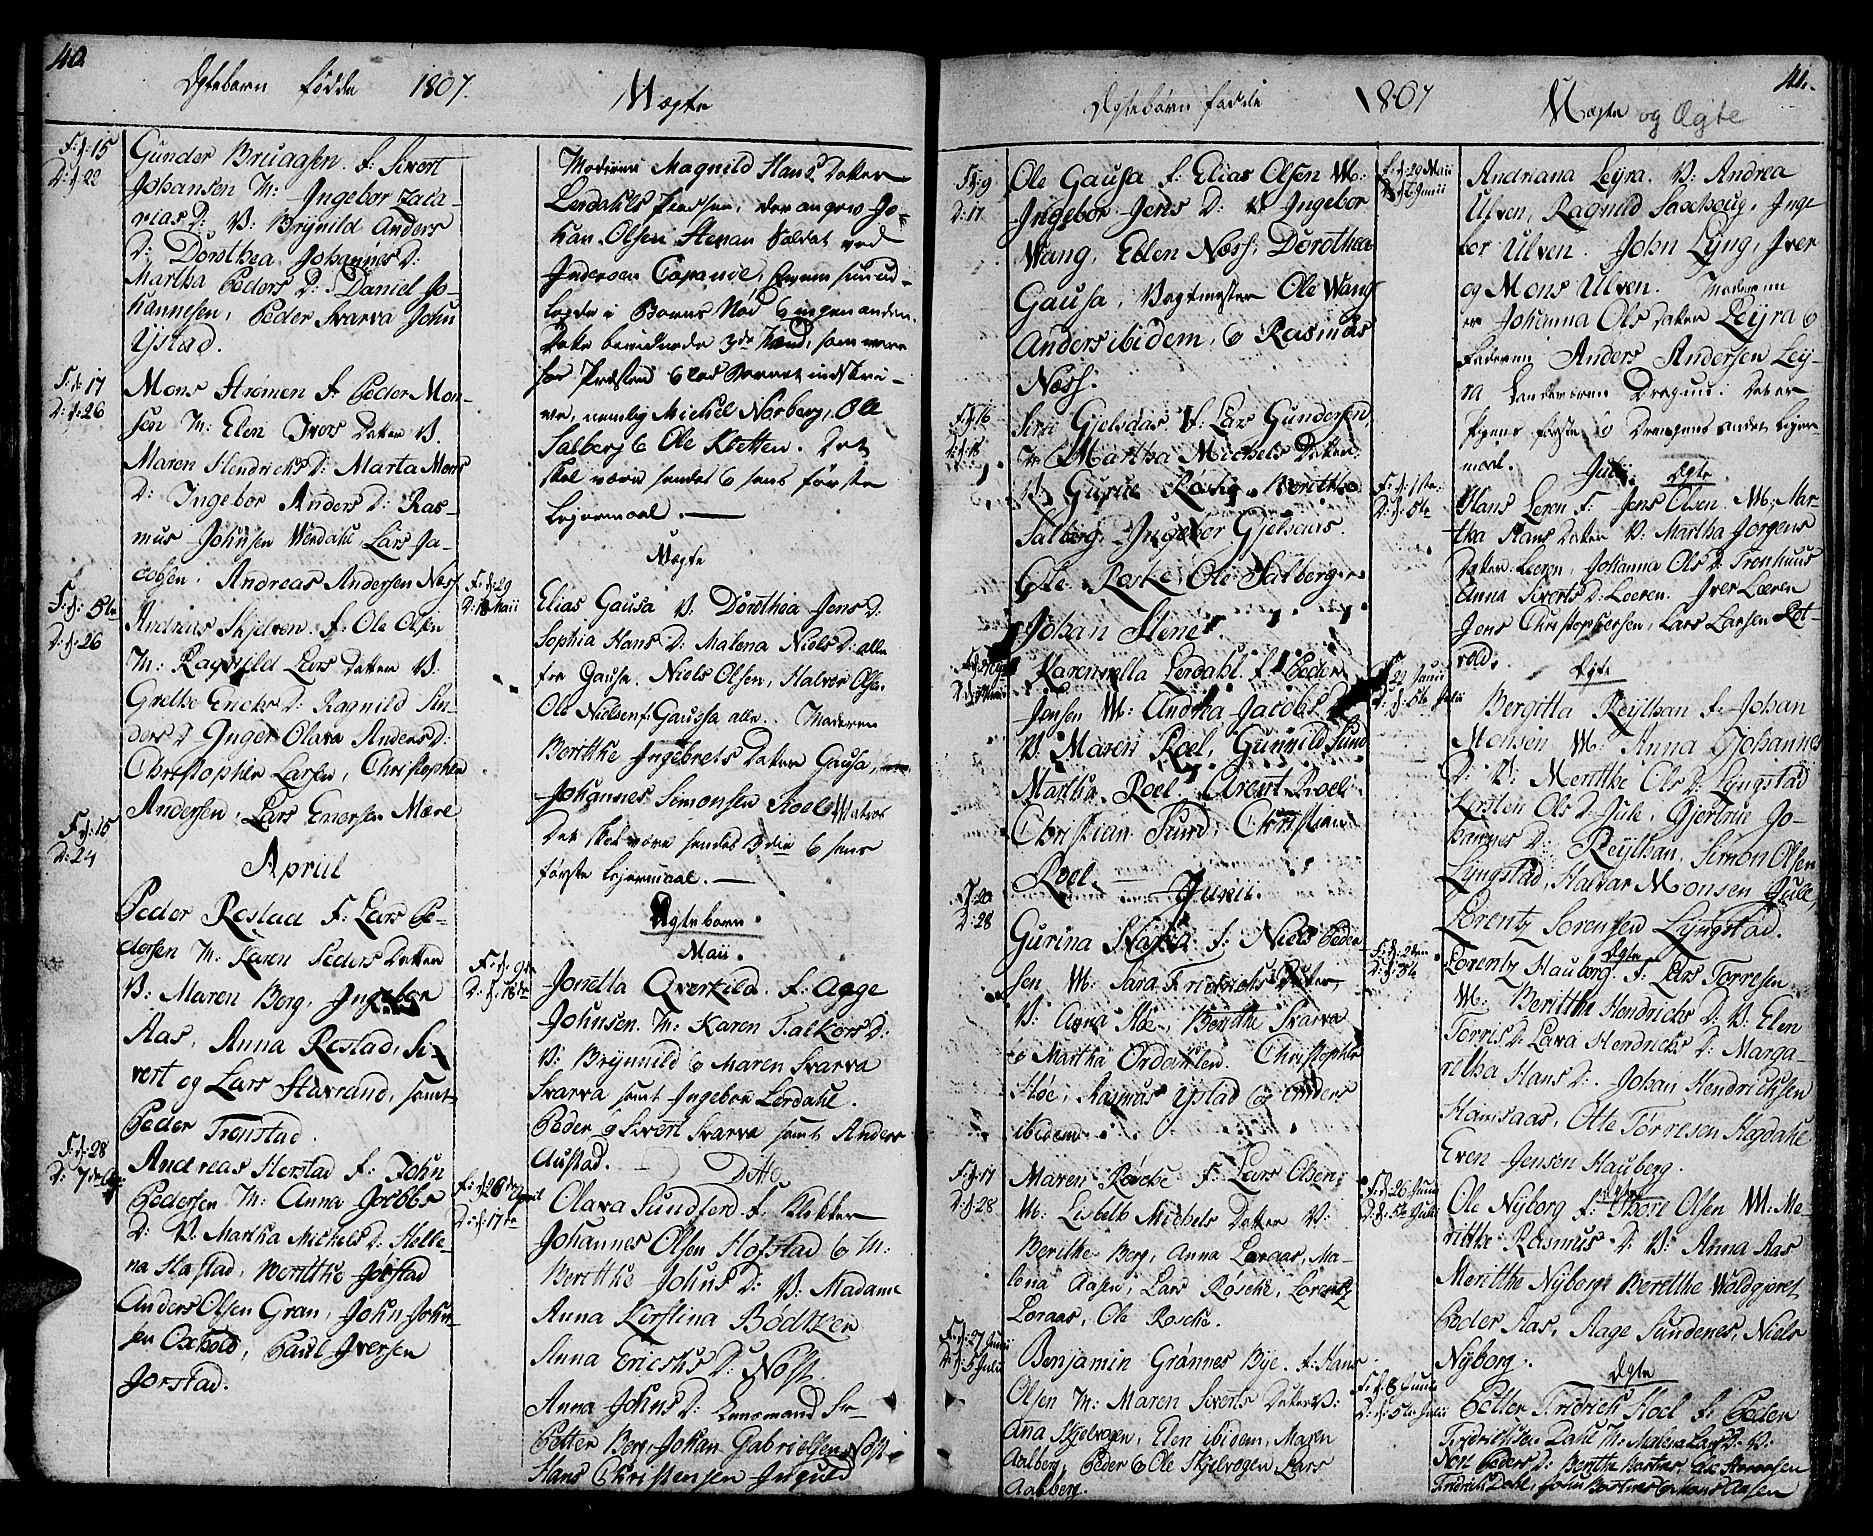 40
Ægtebørn fødde 1807.
Uægte
F: d: 15
D: d: 22
Gunder Bruagsen. F: Sivert
Johansen M: Ingebor Zaca-
rias D: V: Brynild Anders
D: Dorothea Johannes D:
Martha Peders D: Daniel Jo-
hannesen, Peder Svarva John
Ystad.
F: d: 17
D: d: 26
Mons Strømen F: Peder Mon-
sen M: Elen Ivers Datter V.
Maren Hendrichs D: Marta Mons
D: Ingebor Anders D: Ras-
mus Johnsen Werdahl Lars Ja-
cobsen. Andreas Andersen Næss
F: d: 5te
D: d: 26
Andreas Skjelven. F: Ole Olsen
M: Ragnild Lars Datter V.
Grethe Erichs D: Ragnild Sin-
ders D Inger Olava Anders D:
Christopher Larsen, Christopher
Andersen, Lars Enersen Mære
F: d: 15
D: 24
April
Peder Restad F: Lars Pe-
dersen M: Karen Peders Datter
V: Maren Berg, Ingebor
Aas, Anna Restad, Si-
vert og Lars Stavrand, samt
Peder Tronstad.
F: d: 28
D: 7de
Andreas Herstad F: John
Pedersen M: Anna Jacobs
D: V: Martha Michels D: Helle-
na Hastad, Berithe Jørstad
Anders Olsen Gran, John John-
sen Oxhold, Paul Iversen
Jørstad.
Moderen Magnild Hans Datter
Lerdahls Pladsen, der angav Jo-
han Olsen Stenan Soldat ved
Inderøen Compagnie, Hiemmedøbt
lagde i Barns Nød 6 ingen anden.
Dette bevidnede 3de Mænd, som vare
hos Præsten 6 lod Barnet indskri-
ve, nemlig Michel Norberg, Ole
Salberg 6 Ole Kletten. Det
skal være hendes 6 hans første
Lejermaal.
Uægte
F: d: 29
D: 18 Maii
Elias Gausa V. Dorothea Jens D:
Sophia Hans D: Malena Niels D: alle
fra Gausa. Niels Olsen, Halver Olsen
Ole Nielsen f. Gausa alle. Moderen
Berithe Ingebrets Datter Gausa,
Johannes Simonsen Roel Matros
Det skal være hendes 3die 6 hans
første Lejermaal.
Ægtebørn.
Maii.
F: d: 9de
D: d: 18de
Jonetta Qverkild. F: Aage
Johnsen. M: Karen Falkers D:
V: Brynnild 6 Maren Svarva
Svarva samt Ingebor Lerdahl.
Peder 6 Sivert Svarva samt Anders
Austad.
Ditto
F: d: 26de April
D: d: 17de
Olava Sundferd F: Klokker
Johannes Olsen Hofstad 6 M:
Berithe Johns D: V: Madame
Anna Kirstina Bødtzer
Anna Erichs D: Nøst.
Anna Johns D:
Petter Berg, Johan Gabrielsen Nøst.
Hans Christensen Inguld
41.
Ægtebørn fødde 1807
Uægte og Ægte
F: d: 9
D: 17
Ole Gausa F: Elias Olsen M:
Ingebor Jens D: V Ingebor
Wang, Ellen Næss, Dorothea
Gausa, Vagtmester Ole Wang
Anders ibidem, 6 Rasmus
Næss.
F: d: 16
D: d: 18
Siri Gjelsdas F: Lars Gundersen
M: Martha Michels Datter
V: Gurue Røske, Berithe
Salberg, Ingebor Gjelsaas
Ole Roske, Ole Salberg
Johan Stene
Karenrella Lerdahl. F: Peder
Jensen M: Andrea Jacobs D
V. Maren Roel, Gunnild Sund
Martha Roel, Arent Roel
Christian Sund, Christian
Roel.
Junii.
F: 20
D: 28
Gurina Stafsa F: Niels Peder
sen M: Sara Friderichs Datter,
V: Anna Høe, Berithe Svarva
6 Martha Ordahlen. Christopher
Høe, Rasmus Ystad 6 Anders
ibidem
F: d: 17
D: d: 28
Maren Røsche F: Lars Olsen
M: Lisbeth Michels Datter V:
Berithe Berg, Anna Loraas, Ma-
lena Aasen, Lars Røsche, Lorentz
Loraas, Ole Rosche.
F: d: 27 Junii
D: d: 5 Julii
Benjamin Grønnes Bye. F: Hans
Olsen M: Maren Siverts Datter V:
Ana Skjelvagen, Elen ibidem, Maren
Aalberg, Peder 6 Ole Skjelvagen Lars
Aalberg.
F: d: 29 Maii
D: d: 6 Junii
Andriana Leyra. V: Andrea
Ulven, Ragnild Saxhoug, Inge
bor Ulven. John Lyng, Iver
og Mons Ulven. Moderen
er Johanna Ols Datter Leyra 6
Faderen Anders Andersen Ley-
ra Landeværn Dragun. Det er
Pigens første 6 Drengens andet Lejer-
maal.
Julii. Ægte
F: d: 1ste
D: d: 5te
Hans Leren F: Jens Olsen. M: Mar-
tha Hans Datter V: Martha Jorgens
Datter Leren, Johanna Ols D Tronhuus
Anna Siverts D: Loeren. Iver Loeren
Jens Christophersen, Lars Larsen Lot-
vold.
Ægte
22 Junii
D: d: 5te Julii
Bergitta Reylhan F: Johan
Monsen M: Anna Johannes
D: V: Merithe Ols D: Lyngstad
Kirsten Ols D: Jule, Gjertrue Jo-
hannes D: Reylhan, Simon Olsen
Lyngstad, Halvar Monsen Jule,
Lorentz Sorensen Lyngstad.
Ægte
F: d: 2den
D: d: 5te
Lorentz Hauberg. F: Lars Torresen
M: Berithe Hendrichs D: V: Elen
Torris D: Lava Hendrichs D: Marga-
retha Hans D: Johan Hendrichsen
Hamsaas, Otte Torresen Hagdahl
Even Jensen Hauberg.
Ægte
F: d: 26 Junii
D: d: 5te Julii
Ole Nyborg F: Thore Olsen M: Me-
rithe Rasmus D: V: Anna Aas
Merithe Nyborg Berithe Woldgjeret
Peder Aas, Aage Sundenes, Niels
Nyborg.
Ægte
F: d: 8 Junii
D: d: 5te Julii
Petter Fridrich Hoel F: Peder
Fridrichsen Dahl M: Malena Lars D: V:
Peders D: Berithe
Fridrich Dahl, John